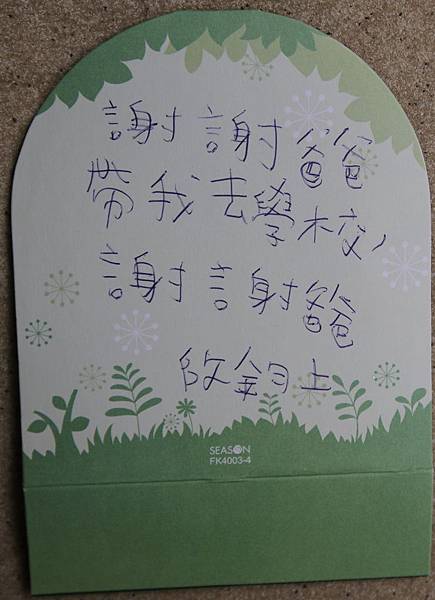 謝謝爸爸
帶我去學校,
謝謝爸爸
啟鈞上
SEASON
FK4003-4